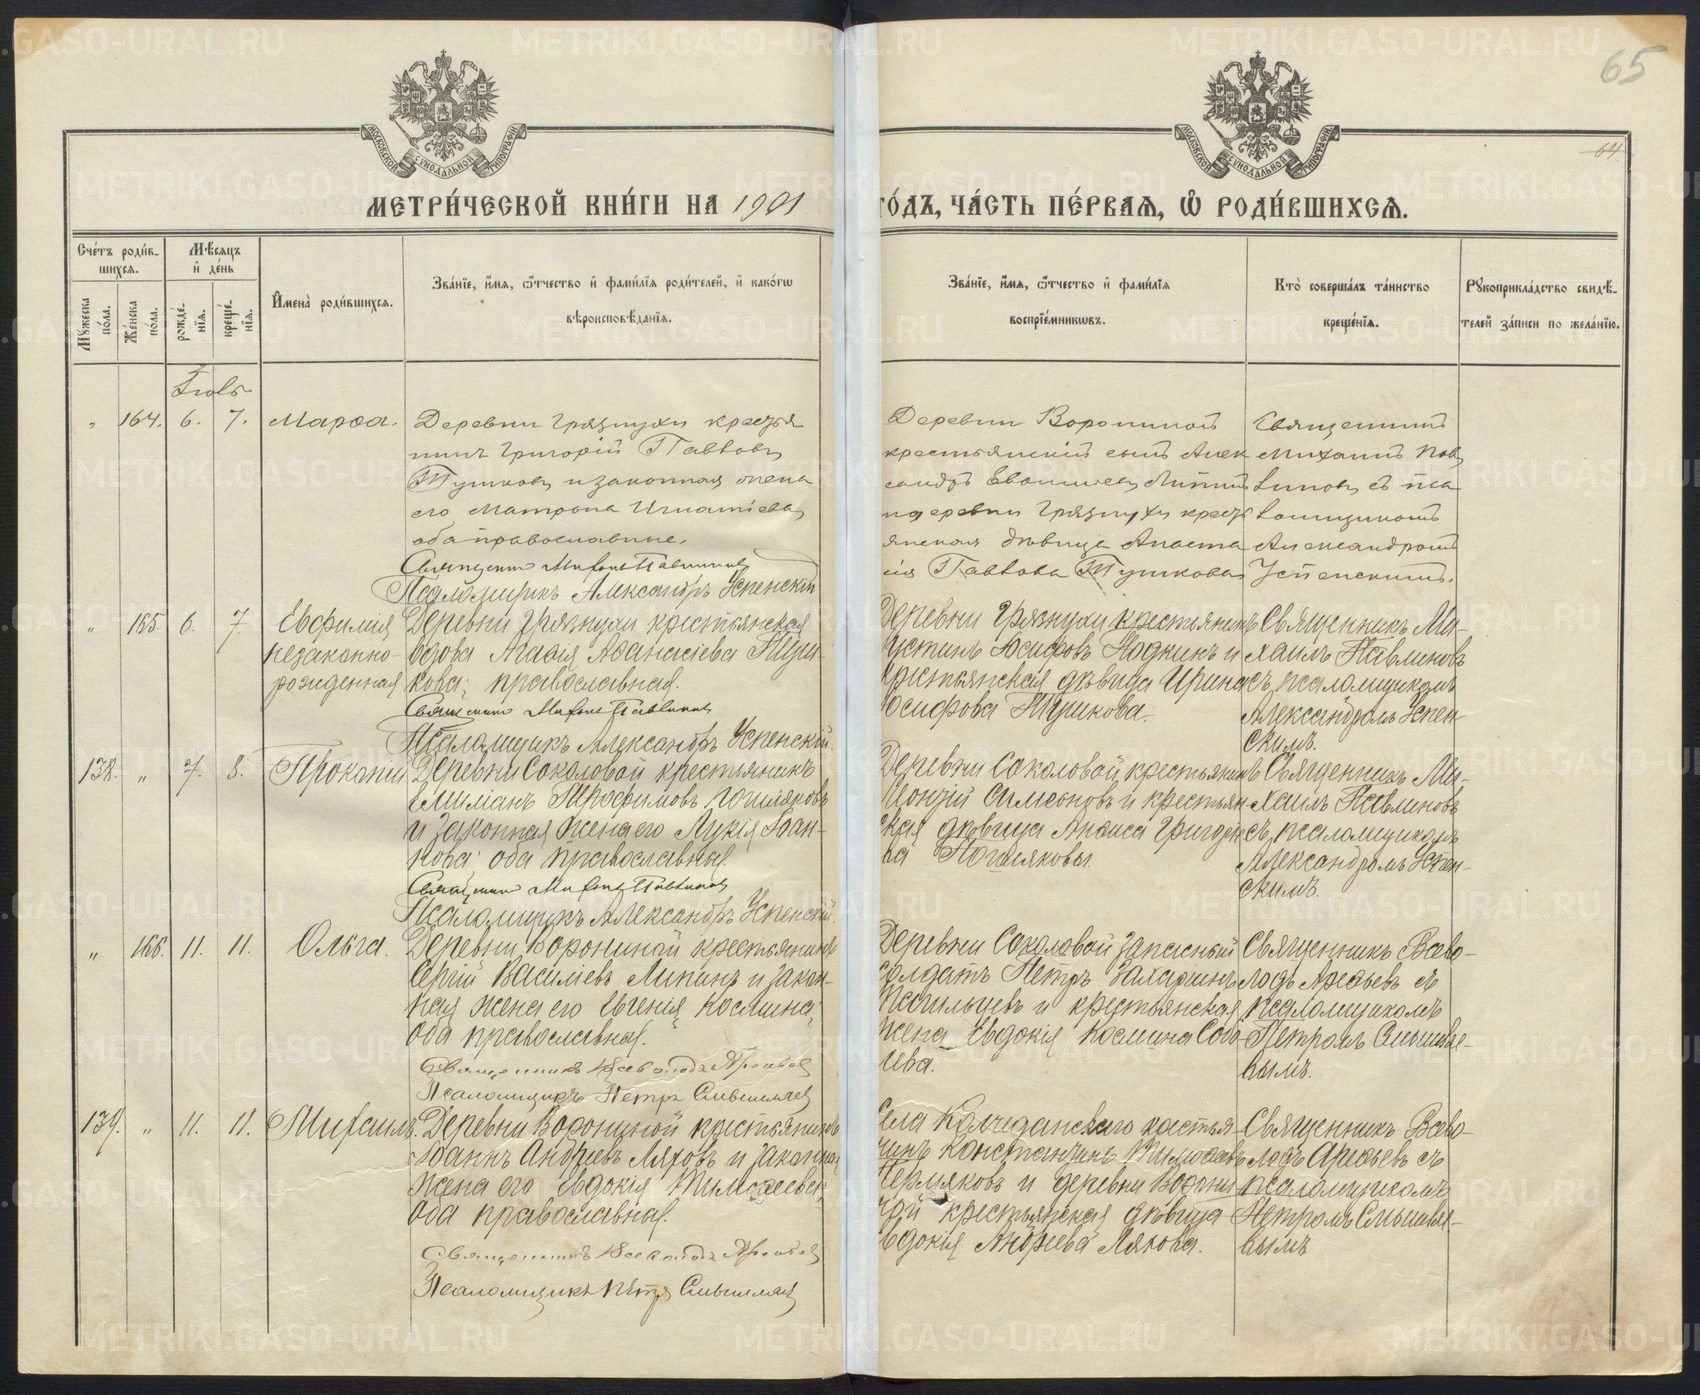 METRIKI.GASO-URAL.RU
65
64.
МОСКОВСКОЙ СѴНОДАЛЬНОЙ ТИПОГРАФІИ
МЕТРИ́ЧЕСКОЙ КНИ́ГИ НА 1901
ГО́ДЪ, ЧА́СТЬ ПЕ́РВАЯ, Ѡ҆ РОДИ́ВШИХСЯ.
Сче́тъ роди́в-
шихся.
Мѣ́сяцъ
и҆ де́нь
Мꙋ́жеска по́ла.
Же́нска по́ла.
рожде́-нїя.
креще́-нїя.
И҆мена̀ роди́вшихся.
Зва́нїе, и҆́мя, ѻ҆́тчество и҆ фами́лїя роди́телей, и҆ како́гѡ
вѣроисповѣ́данїя.
Зва́нїе, и҆́мя, ѻ҆́тчество и҆ фами́лїя
воспрїе́мникѡвъ.
Кто̀ соверша́лъ та́инство
креще́нїя.
Рꙋкоприкла́дство свидѣ́-
телей за́писи по жела́нїю.
Іюль
„ 164. 6. 7. Марѳа.
Деревни Грязнухи крестья
нинъ Григорій Павловъ
Тушковъ и законная жена
его Матрона Игнатіева,
оба православные.
Священникъ Михаилъ Павлиновъ
Псаломщикъ Александръ Успенскій
Деревни Ворониной
крестьянскій сынъ Алек
сандръ Евфимиевъ Липинъ
и деревни Грязнухи кресть
янская дѣвица Анаста
сія Павлова Тушкова
Священникъ
Михаилъ Пав
линовъ съ пса
ломщикомъ
Александромъ
Успенскимъ.
„ 165. 6. 7. Евфимія
незаконно-
рожденная
Деревни Грязнухи крестьянская
вдова Агафія Аѳанасіева Туш-
кова; православная.
Священникъ Михаилъ Павлиновъ
Псаломщикъ Александръ Успенскій.
Деревни Грязнухи крестьянинъ
Іустинъ Іосифовъ Нодкинъ и
крестьянская дѣвица Ирина
Іосифова Тушкова.
Священникъ Ми-
хаилъ Павлиновъ
съ псаломщикомъ
Александромъ Успен-
скимъ.
138. „ 7. 8. Прокопій
Деревни Соколовой крестьянинъ
Емиліанъ Трофимовъ Погиляковъ
и законная жена его Лукія Іоан-
нова; оба православныя.
Священникъ Михаилъ Павлиновъ
Псаломщикъ Александръ Успенскій.
Деревни Соколовой крестьянинъ
Леонтій Симеоновъ и крестьян
ская дѣвица Анфиса Григорье
ва Погиляковы.
Священникъ Ми-
хаилъ Павлиновъ
съ псаломщикомъ
Александромъ Успен-
скимъ.
„ 166. 11. 11. Ольга.
Деревни Ворониной крестьянинъ
Сергій Василіевъ Липинъ и закон-
ная жена его Евгенія Космина;
оба православныя.
Священникъ Всеволодъ Арефьев
Псаломщикъ Петръ Смышляев
Деревни Соколовой запасный
солдатъ Петръ Захаринъ
и крестьянская
жена Евдокія Космина
Священникъ Всево-
лодъ Арефьевъ съ
псаломщикомъ
Петромъ Смышляе-
вымъ.
139. „ 11. 11. Михаилъ.
Деревни Ворониной крестьянинъ
Іоаннъ Андреевъ Ляховъ и законная
жена его Евдокія Тимоѳеева;
оба православныя.
Священникъ Всеволодъ Арефьев
Псаломщикъ Петръ Смышляев
Села Колчеданскаго крестья-
нинъ Константинъ Тимоѳеевъ
Пермяковъ и деревни Ворони
ной крестьянская дѣвица
Евдокія Андреева Ляхова.
Священникъ Всево-
лодъ Арефьевъ съ
псаломщикомъ
Петромъ Смышляе-
вымъ